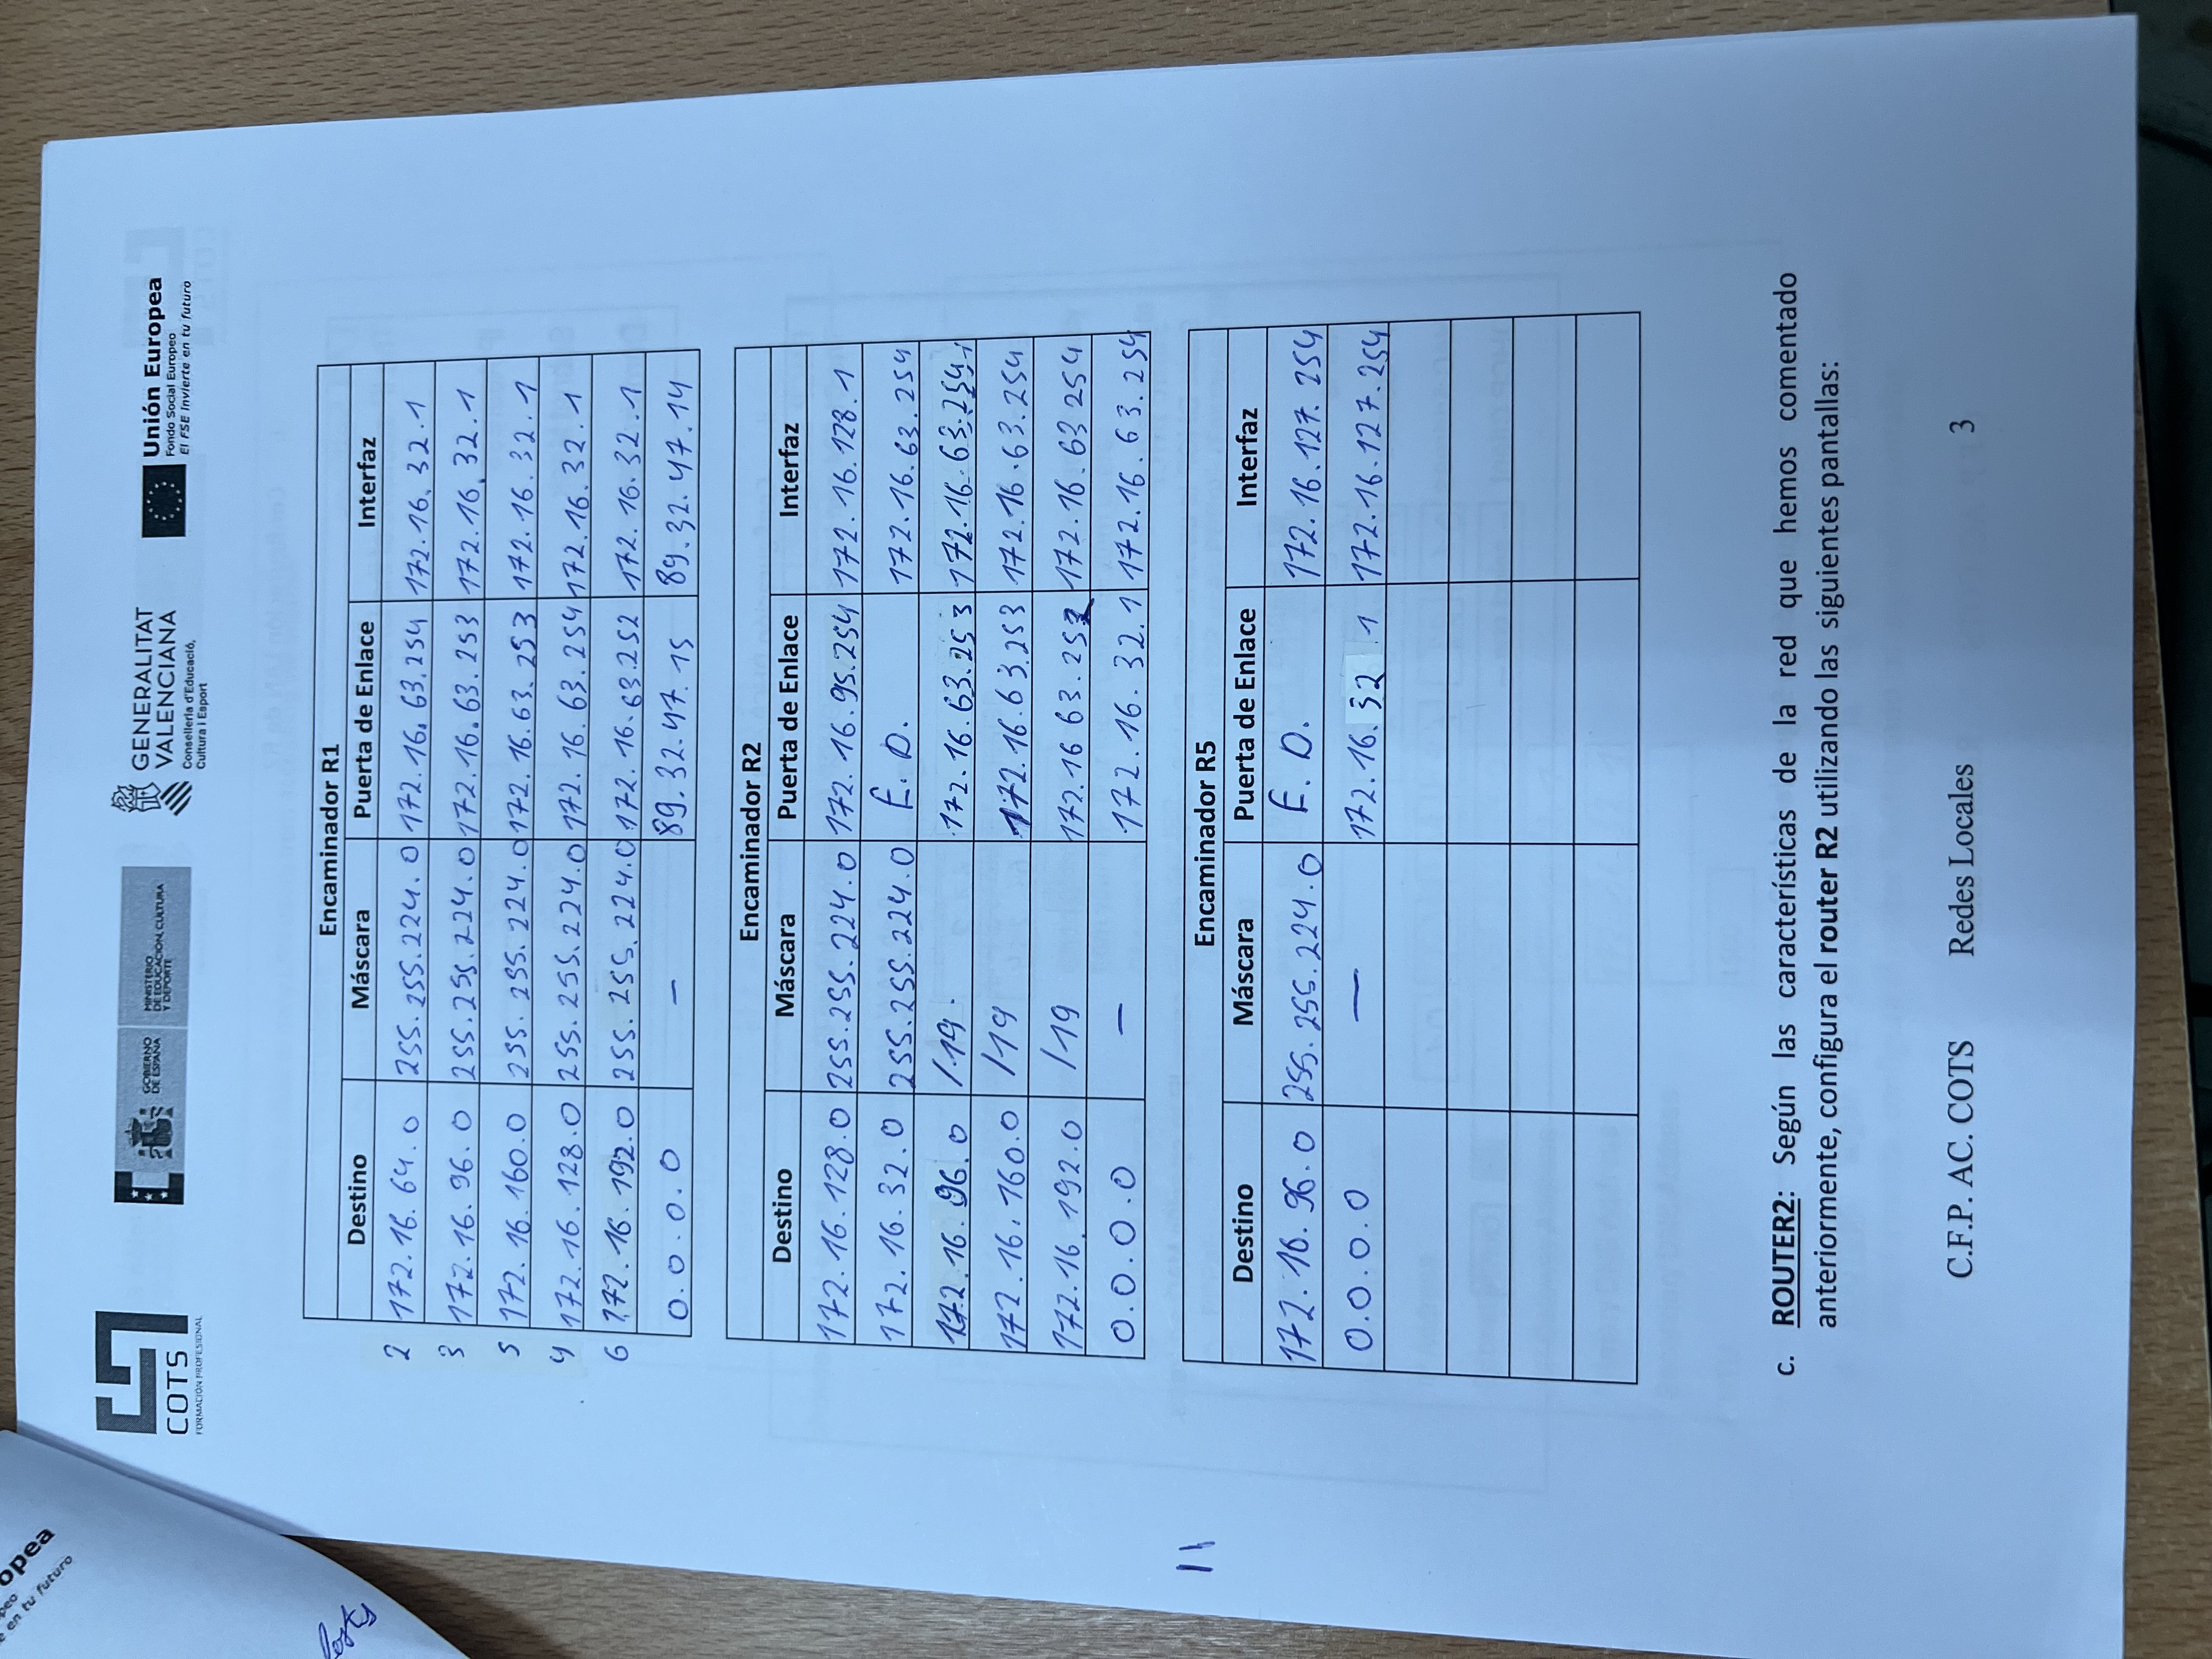 opea
peo
e en tu futuro
COTS
FORMACIÓN PROFESIONAL
GOBIERNO DE ESPAÑA
MINISTERIO DE EDUCACIÓN, CULTURA Y DEPORTE
GENERALITAT VALENCIANA
Conselleria d'Educació, Cultura i Esport
Unión Europea
Fondo Social Europeo
El FSE invierte en tu futuro
Encaminador R1
Destino Máscara Puerta de Enlace Interfaz
2 172.16.64.0 255.255.224.0 172.16.63.254 172.16.32.1
3 172.16.96.0 255.255.224.0 172.16.63.253 172.16.32.1
5 172.16.160.0 255.255.224.0 172.16.63.253 172.16.32.1
4 172.16.128.0 255.255.224.0 172.16.63.254 172.16.32.1
6 172.16.192.0 255.255.224.0 172.16.63.252 172.16.32.1
0.0.0.0 — 89.32.47.15 89.32.47.14
Encaminador R2
Destino Máscara Puerta de Enlace Interfaz
172.16.128.0 255.255.224.0 172.16.95.254 172.16.128.1
172.16.32.0 255.255.224.0 E.D. 172.16.63.254
172.16.96.0 /19. 172.16.63.253 172.16.63.254
172.16.160.0 /19 172.16.63.253 172.16.63.254
172.16.192.0 /19 172.16 63.252 172.16.63 254
0.0.0.0 — 172.16.32.1 172.16.63.254
11
Encaminador R5
Destino Máscara Puerta de Enlace Interfaz
172.16.96.0 255.255.224.0 E.D. 172.16.127.254
0.0.0.0 — 172.16.32.1 172.16.127.254
c. ROUTER2: Según las características de la red que hemos comentado
anteriormente, configura el router R2 utilizando las siguientes pantallas:
C.F.P. AC. COTS Redes Locales 3